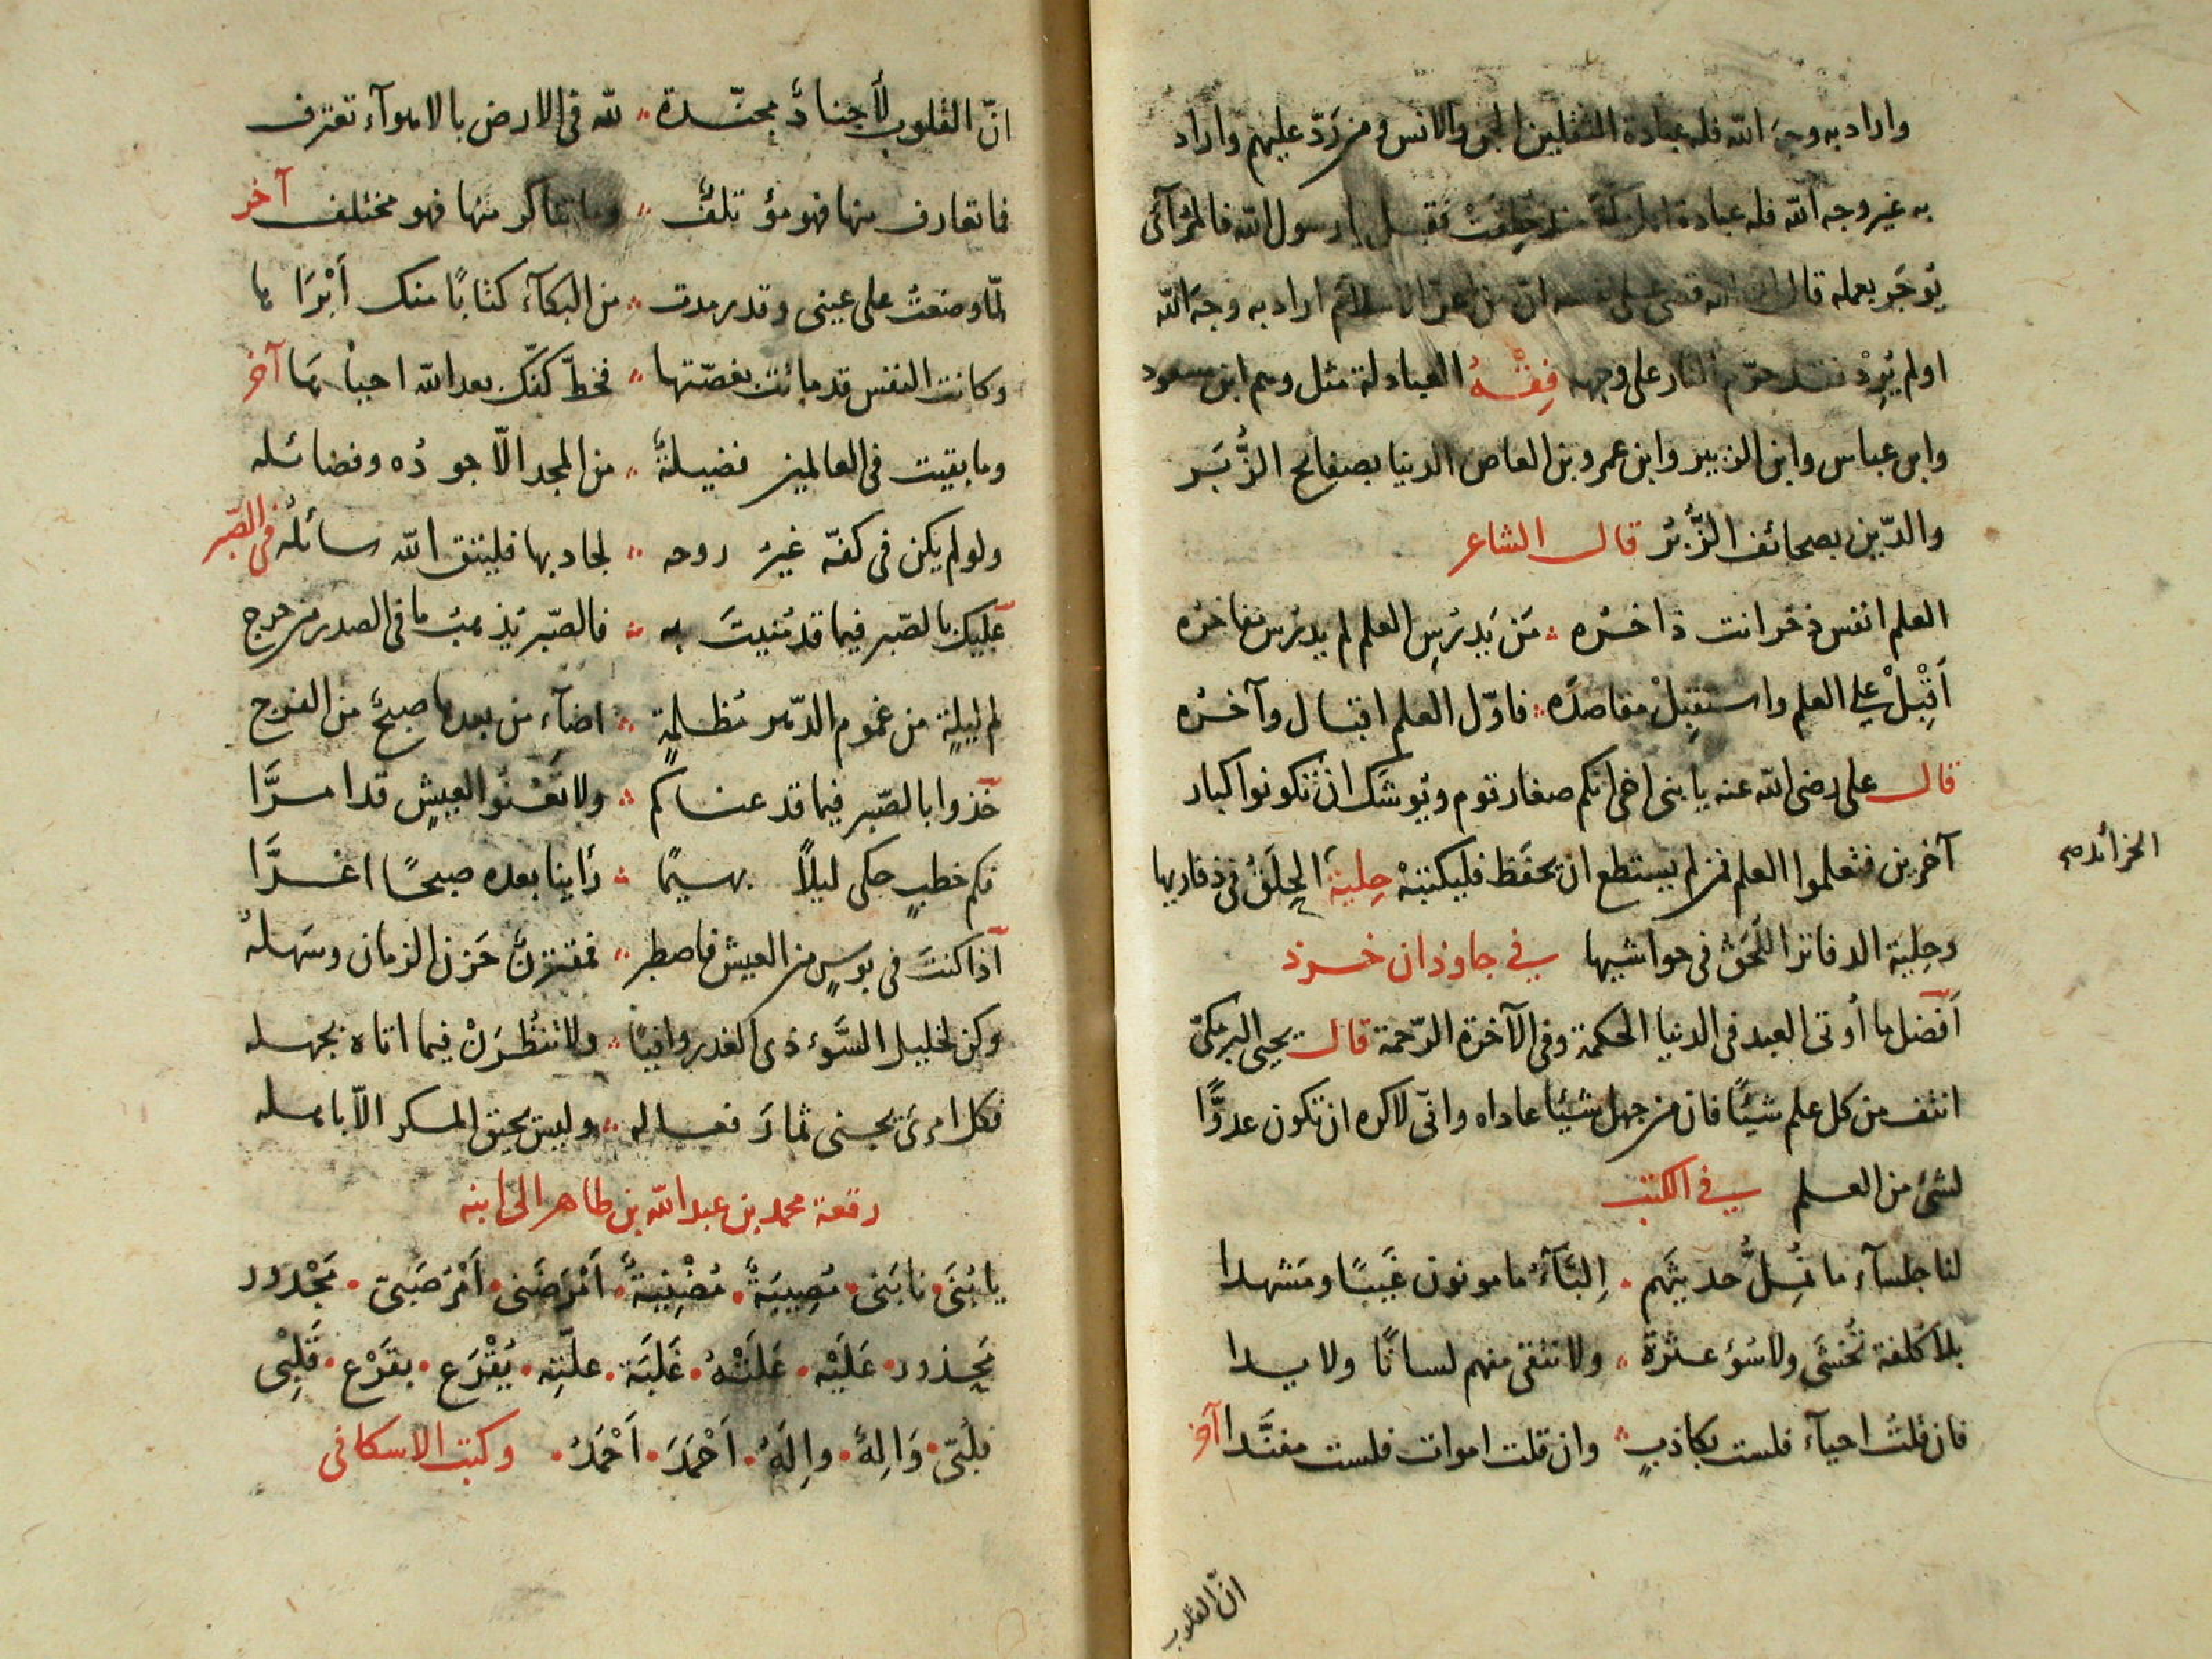 واراد به وجه الله فله عبادة الثقلين الجن والانس ومن رَدّ عليهم واراد
به غير وجه الله فله عبادة خلقت فقيل يا رسول الله فالمُرائى
يُوجَر بعمله قال ان الله قضى على نفسه ان من اعزّ الاسلام اراد به وجه الله
او لم يُرِدْ فقد حرّم النار على وجهه فِقْهُ العبادلة مثل وسم ابن مسعود
وابن عباس وابن الزبير وابن عمرو بن العاص الدنيا بصفايح الزُّبَر
والدّين بصحائف الزُّبُر قال الشاعر
العلم انفس ذخر انت ذاخرُه ؞ مَن يَدرُسِ العلم لم يدرُس مفاخرُه
اَقْبِلْ على العلم واستقبِلْ مقاصدَه ؞ فاوّل العلم اقبال وآخرُه
قال على رضى الله عنه يا بنى اخى انكم صغار قوم ويُوشَك ان تكونوا كبار
آخرين فتعلموا العلم فمن لم يستطع ان يحفَظ فليكتبْه حِلية الحِلَقُ فى ذفاريها
وحِليَة الدفاتر اللَّحَقُ فى حواشيها فى جاوذان خرد
اَفضل ما اُوتى العبد فى الدنيا الحكمة وفى الآخرة الرّحمة قال يحيى البرمكىّ
انتف من كل علم شيئًا فان من جهل شيئًا عاداه وانّى لاكره ان تكون عدوًّا
لشئ من العلم فى الكتب
لنا جلسآء ما نُمِلُّ حديثهم . اِلبّآءُ مامونون غَيبًا ومَشهدا
بلا كلفة تُخشَى ولا سُوءِ عشرَة ؞ ولا تتقى منهم لسانًا ولا يدا
فان قلتَ احيآء فلست بكاذبٍ ؞ وان قلت اموات فلست مفنَّدا آخر
ان القلوب
انّ القلوب لأجنادٌ مجنّدة ؞ لله فى الارض بالاهوآء تعترف
فما تعارف منها فهو مؤتلفٌ ؞ وما تناكر منها فهو مختلف آخر
لمّا وضعتُ على عينى وقد رمدت ؞ من البكآء كتابًا منك اَبْرَاها
وكانت النفس قد ماتت بغصّتها ؞ فخطّ كفّك بعد الله احياْها آخر
وما بقيت فى العالمين فضيلةٌ ؞ من المجد الّا جودُه وفضائله
ولو لم يكن فى كفّه غيرُ روحه ؞ لجاد بها فليتق الله سائلُه فى الصّبر
عليك بالصّبر فيما قد مُنيتَ به ؞ فالصّبر يُذهبُ ما فى الصدر من حرج
لم ليلةٍ من غموم الدّهر مُظلمةٍ ؞ اضآء من بعدها صبحٌ من الفرج
خذوا بالصّبر فيما قد عناكم ؞ ولا تَعْنُوا لعيشٍ قد امرَّا
فكم خطبٍ حكى ليلًا بهيمًا ؞ رأينا بعده صبحًا اغرَّا
اذا كنتَ فى بوسٍ من العيش فاصطبر ؞ فمقترنٌ حَزن الزمان وسَهله
وكن لخليل السَّوء ذى الغدر وافيًا ؞ ولا تنظُرَنْ فيما اتاه بجهله
فكل امرئ يجنى ثمارَ فعاله ؞ وليس يحيق المكر الّا باهله
رقعة محمد بن عبد الله بن طاهر الى ابنه
يا بُنَىَّ . نابَنى . مُصِيبَةٌ . مُضْنِيَةٌ . اَمْرَضَنى . اَمْرُ صَبىّ . مَجْدور
مَجدور . عَلَيْه . عَلَتْهُ . عَلَيَة . علّتِه . يُقْرَع . بقَرْع . قَلبِى
فلُبّى . وَالِهٌ . والِهُ . اَحْمَدَ . اَحْمَدُ . وكتب الاسكافى